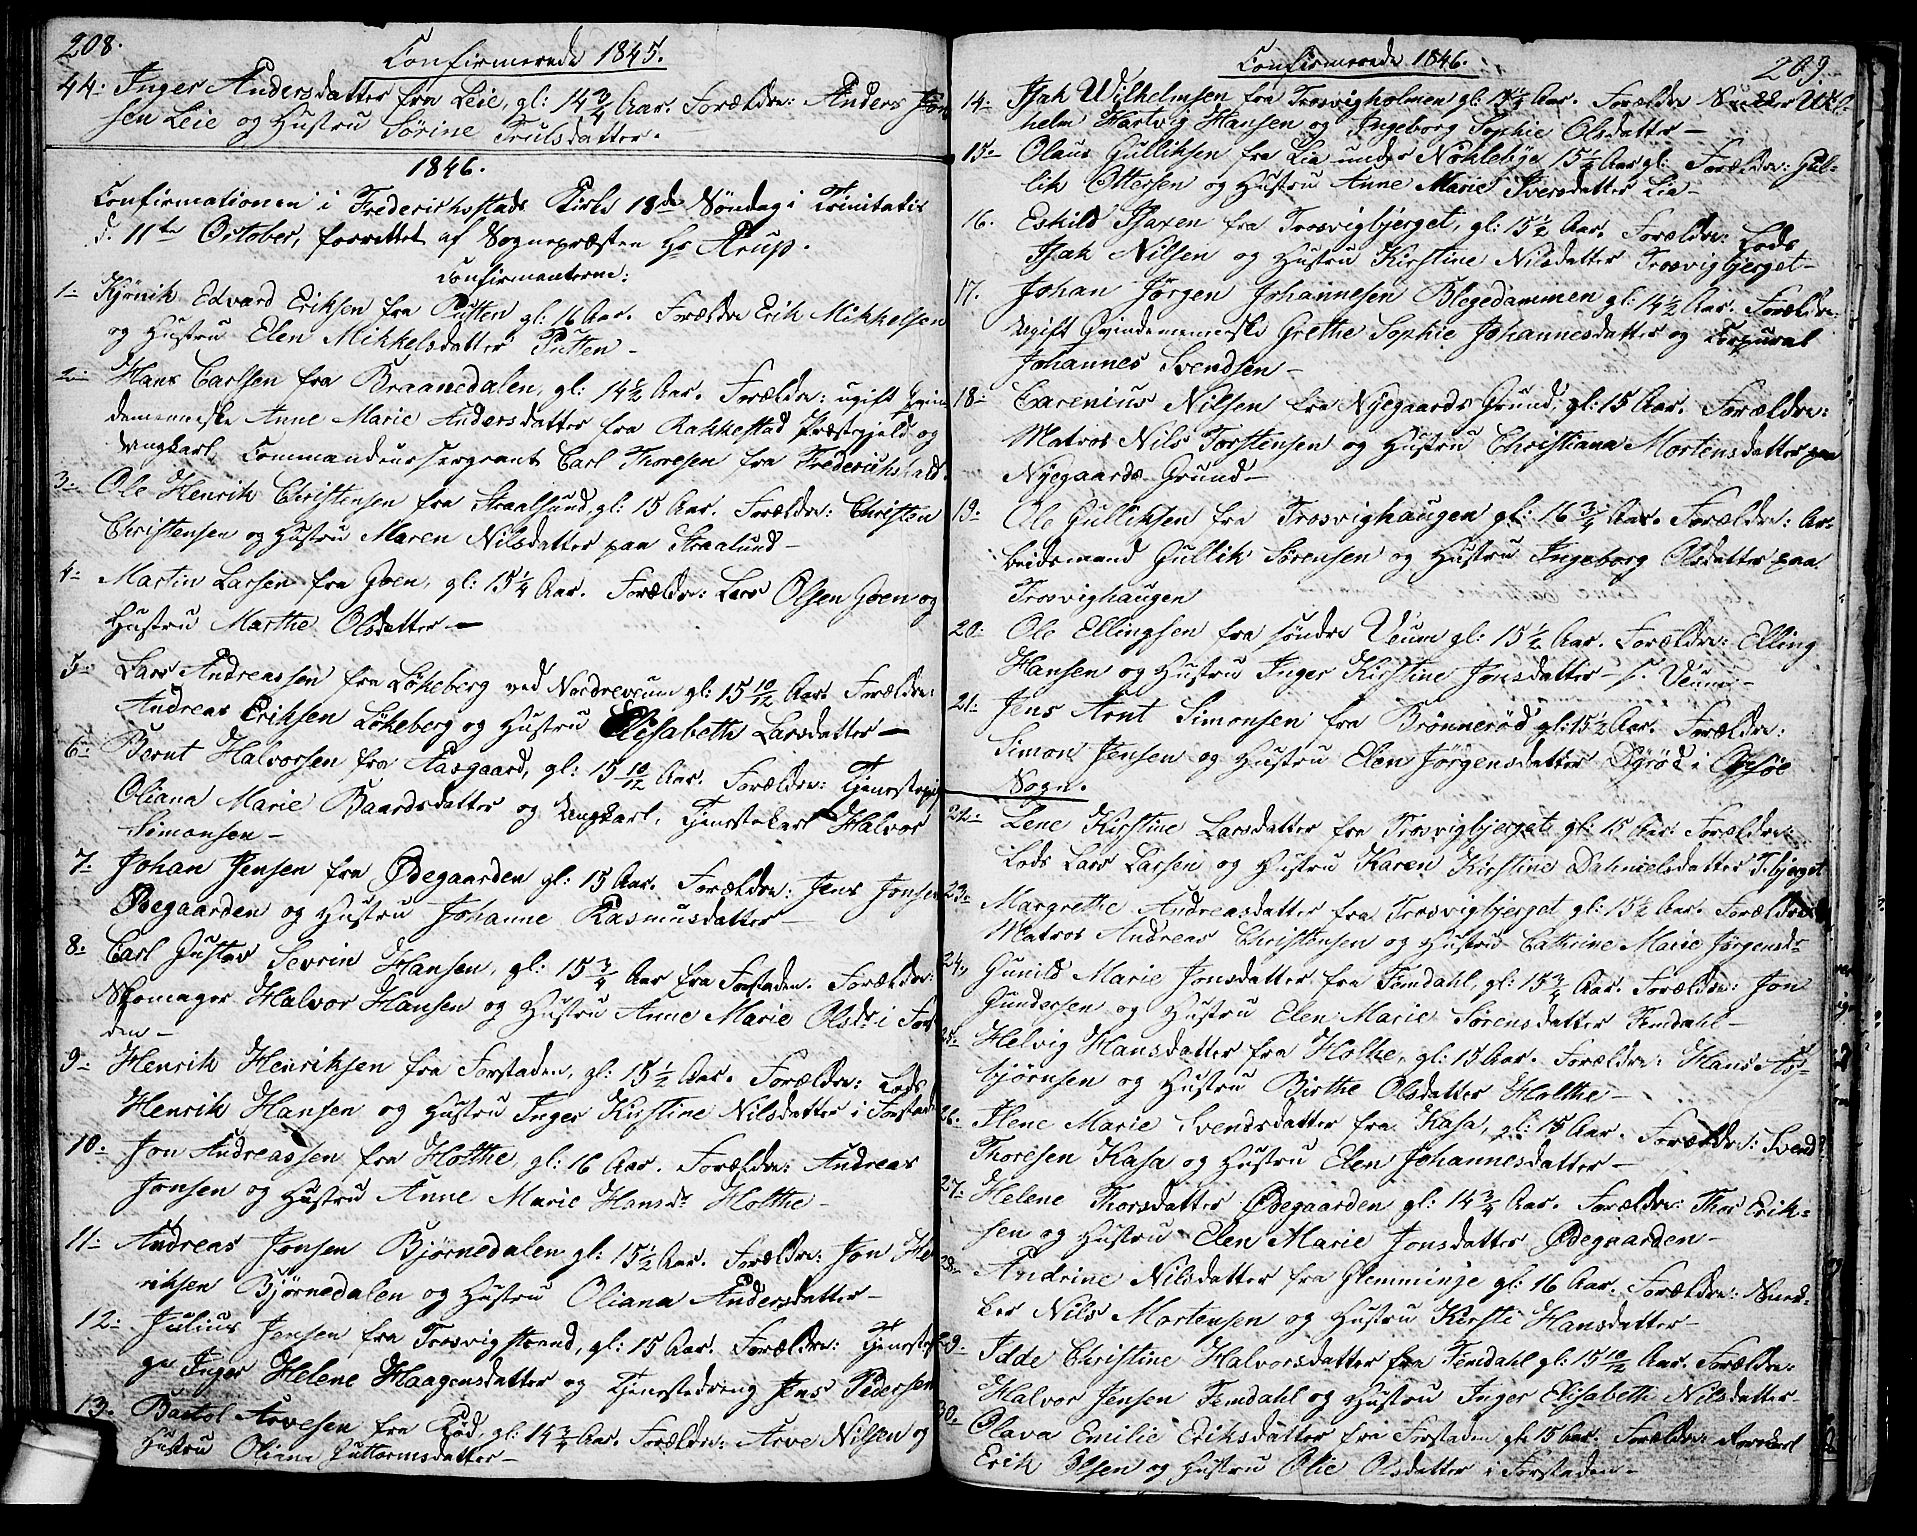 208.
Confirmerede 1845.
44. Inger Andersdatter fra Leie, gl: 14 3/4 Aar. Forældre: Anders Jon
sen Leie og Hustru Sørine Trulsdatter.
1846.
Confirmationen i Frederichsstads Kirke 18de Søndag i Trinitatis
d. 11te October, forrettet af Sognepræsten Hr Arup.
Confirmanterne:
1. Kjønik Edvard Eriksen fra Putten gl: 16 Aar. Forældre Erik Mikkelsen
og Hustru Elen Mikkelsdatter Putten -
2. Hans Carlsen fra Braanedalen, gl: 14 1/2 Aar. Forældre: ugift Qvin
demenneske Anne Marie Andersdatter fra Rakkestad Præstegjeld og
Ungkarl Commandeursergeant Carl Thoresen fra Frederichshald.
3. Ole Henrik Christensen fra Straalsund, gl: 15 Aar. Forældre: Christen
Christensen og Hustru Maren Nilsdatter paa Straalund -
4. Martin Larsen fra Goen, gl: 15 1/4 Aar. Forældre: Lars Olsen Goen og
Hustru Marthe Olsdatter -
5. Lars Andreassen fra Løkeberg ved Nordreveum gl: 15 10/12 Aar. Forældre:
Andreas Eriksen Løkeberg og Hustru Elisabeth Larsdatter -
6. Bernt Halvorsen fra Aasgaard, gl: 15 10/12 Aar. Forældre: Tjenestepig
Oliana Marie Baardsdatter og Ungkarl, Tjenestekarl Halvor
Simonsen -
7. Johan Jensen fra Ødegaarden gl: 15 Aar. Forældre: Jens Jonsen
Ødegaarden og Hustru Johanne Rasmusdatter -
8. Carl Gustav Sevrin Hansen, gl: 15 3/4 Aar fra Forstaden. Forældre:
Skomager Halvor Hansen og Hustru Anne Marie Olsdr i Forsta
den -
9. Henrik Henriksen fra Forstaden, gl: 15 1/2 Aar. Forældre: Lods
Henrik Hansen og Hustru Inger Kirstine Nilsdatter i Forstad
10. Jon Andreassen fra Holthe, gl: 16 Aar. Forældre: Andreas
Jonsen og Hustru Anne Marie Hansdr Holthe -
11. Andreas Jonsen Bjørnedalen gl: 15 1/2 Aar. Forældre: Jon He
riksen Bjørnedalen og Hustru Oliana Andersdatter -
12. Julius Jensen fra Trosvigstrand, gl: 15 Aar. Forældre: Tjenestepi
ge Inger Helene Haagensdatter og Tjenestedreng Jens Pedersen
13. Bartol Arvesen fra Rød, gl: 14 3/4 Aar. Forældre: Arve Nilsen og
Hustru Oliana Guttormsdatter -
Confirmerede 1846.
209.
14. Isak Wilhelmsen fra Trosvigholmen gl: 15 1/4 Aar. Forældre Snedker Wil
helm Hartvig Hansen og Ingeborg Sophie Olsdatter -
15. Olaus Gulliksen fra Lie under Nøklebye 15 1/2 Aar gl: Forældre: Gul-
lik Ottersen og Hustru Anne Marie Iversdatter Lie -
16. Eskild Isaxen fra Trosvigbjerget, gl: 15 1/2 Aar. Forældre: Lods
Isak Nilsen og Hustru Kirstine Nilsdatter Trosvigbjerget -
17. Johan Jørgen Johannesen Blegedammen gl: 14 1/2 Aar. Forældre:
Ugift Qvindemenneske Grethe Sophie Johannesdatter og Korpural
Johannes Svendsen -
18. Carenius Nilsen fra Nyegaards Grund, gl: 15 Aar. Forældre:
Matros Nils Torstensen og Hustru Christiana Mortensdatter paa
Nyegaards Grund -
19. Ole Gulliksen fra Trosvighaugen gl: 16 3/4 Aar. Forældre: Ar-
beidsmand Gullik Sørensen og Hustru Ingeborg Olsdatter paa
Trosvighaugen
20. Ole Ellingsen fra søndre Veum gl: 15 1/2 Aar. Forældre: Elling
Hansen og Hustru Inger Kirstine Jonsdatter - s. Veum -
21. Jens Arnt Simonsen fra Brønnerød gl: 15 1/2 Aar. Forældre:
Simon Jensen og Hustru Elen Jørgensdatter i Onsøe
Sogn.
22. Lene Kirstine Larsdatter fra Trosvigbjerget gl: 15 Aar. Forældre:
Lods Lars Larsen og Hustru Karen Kirstine Dahnielsdatter T.bjerget
23. Margrethe Andreasdatter fra Trosvigbjerget gl: 15 1/2 Aar. Forældre
Matros Andreas Christensen og Hustru Cathrine Marie Jørgensdr
24. Gunild Marie Jonsdatter fra Femdahl, gl: 15 3/4 Aar. Forældre: Jon
Gundersen og Hustru Elen Marie Sørensdatter Femdahl -
25. Helvig Hansdatter fra Holthe, gl: 15 Aar. Forældre: Hans As-
bjørnsen og Hustru Birthe Olsdatter Holthe -
26. Ilene Marie Svendsdatter fra Kasa, gl: 15 Aar. Forældre: Svend
Thoresen Kasa og Hustru Elen Johannesdatter -
27. Helene Thorsdatter Ødegaarden gl: 14 3/4 Aar. Forældre: Thor Erik-
sen og Hustru Elen Marie Jonsdatter Ødegaarden -
28. Andrine Nilsdatter fra Glemminge gl: 16 Aar. Forældre: Sned-
ker Nils Mortensen og Hustru Kirsti Hansdatter -
29. Idde Christine Halvorsdatter fra Femdahl gl: 15 10/12 Aar. Forældre:
Halvor Jensen Femdahl og Hustru Inger Elisabeth Nilsdatter -
30. Olava Emilie Eriksdatter fra Forstaden gl: 15 Aar. Forældre:
Erik Olsen og Hustru Olie Olsdatter i Forstaden -